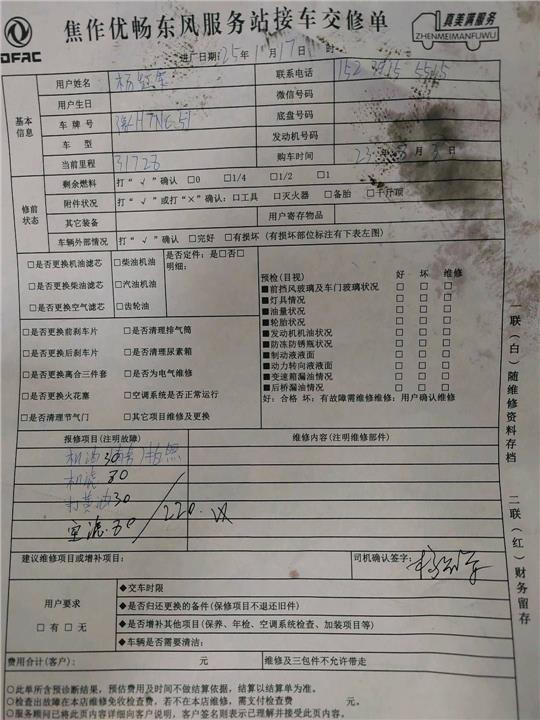 DFAC
焦作优畅东风服务站接车交修单
真美满服务
ZHENMEIMANFUWU
进厂日期:25年1月17日 时
基本信息
用户姓名
联系电话
用户生日
微信号码
车牌号
底盘号码
车型
发动机号码
当前里程 31728
购车时间 年 月 日
修前状态
剩余燃料 打“√”确认 □0 □1/4 □1/2 □1
附件状况 打“√”或打“×”确认:□工具 □灭火器 □备胎 □千斤顶
其它装备
用户寄存物品
车辆外部情况 打“√”确认 □完好 □有损坏 (有损坏部位标注有下表左图)
□是否更换机油滤芯 □柴油机油
□是否更换柴油滤芯 □汽油机油
□是否更换空气滤芯 □齿轮油
是否定件:是□否□
明细:
□是否更换前刹车片 □是否清理排气筒
□是否更换后刹车片 □是否清理尿素箱
□是否更换离合三件套 □是否为电气维修
□是否更换火花塞 □空调系统是否正常运行
□是否清理节气门 □其它项目维修及更换
预检(目视) 好 坏 维修
■前挡风玻璃及车门玻璃状况 □ □ □
■灯具情况 □ □ □
■油量状况 □ □ □
■轮胎状况 □ □ □
■发动机机油状况 □ □ □
■防冻防锈瓶状况 □ □ □
■制动液液面 □ □ □
■动力转向液液面 □ □ □
■变速箱漏油情况 □ □ □
■后桥漏油情况 □ □ □
好:合格 坏:有故障需维修维修:用户确认维修
一联(白)随维修资料存档
二联(红)财务留存
报修项目(注明故障)
维修内容(注明维修部件)
机油30
机滤 80
打黄油30
空滤 80
220.
建议维修项目或增补项目:
司机确认签字:
用户要求
□有□无
◆交车时限
◆是否归还更换的备件(保修项目不退还旧件)
◆是否增补其他项目(保养、年检、空调系统检查、加装项目等)
◆车辆是否需要清洁:
费用合计(客户): 元
维修及三包件不允许带走
○此单所含预诊断结果,预估费用及时间不做结算依据,结算以结算单为准。
○检查出故障在本店维修免收检查费,若不在本店维修,需支付检查费 元。
○服务顾问已将此页内容详细向客户说明,客户签名则表示已理解并接受此页内容。